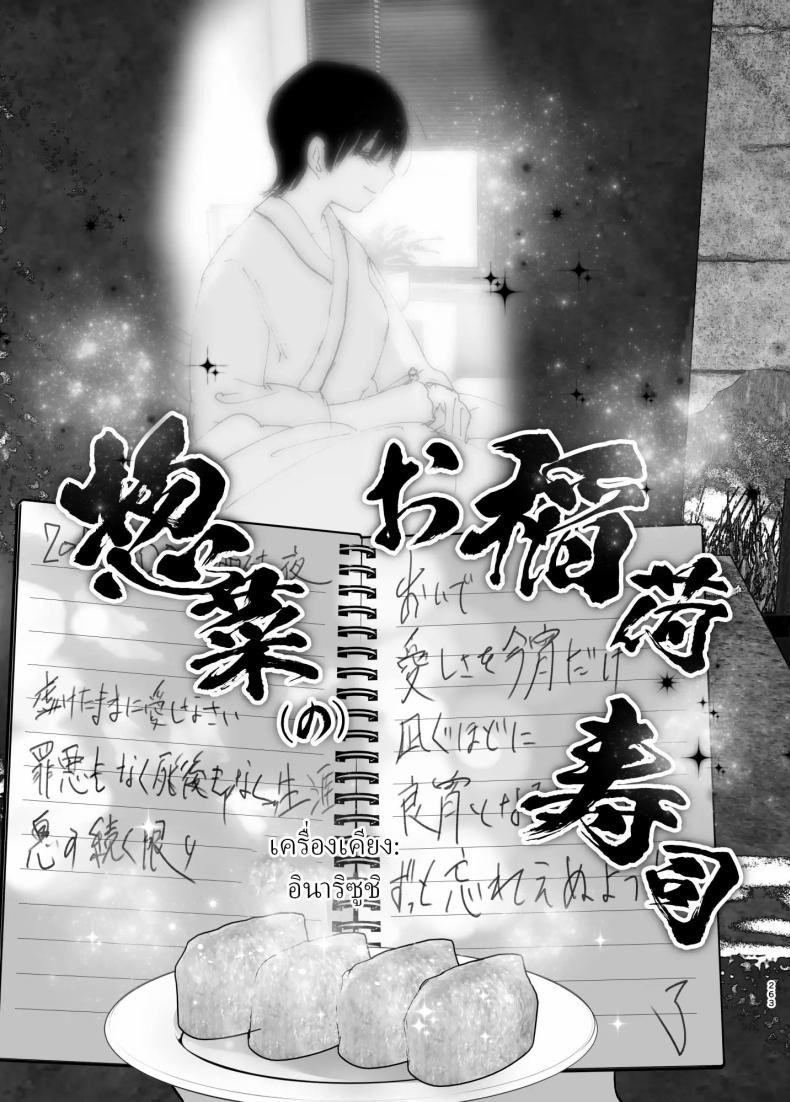 お稲荷寿司
惣菜(の)
おいで
愛しさを今宵だけ
凪ぐほどに
良宵となる
ずっと忘れえぬよう
了
虚けたままに愛しなさい
罪悪もなく死後もなく生涯
息の続く限り
เครื่องเคียง:
อินาริซูชิ
263